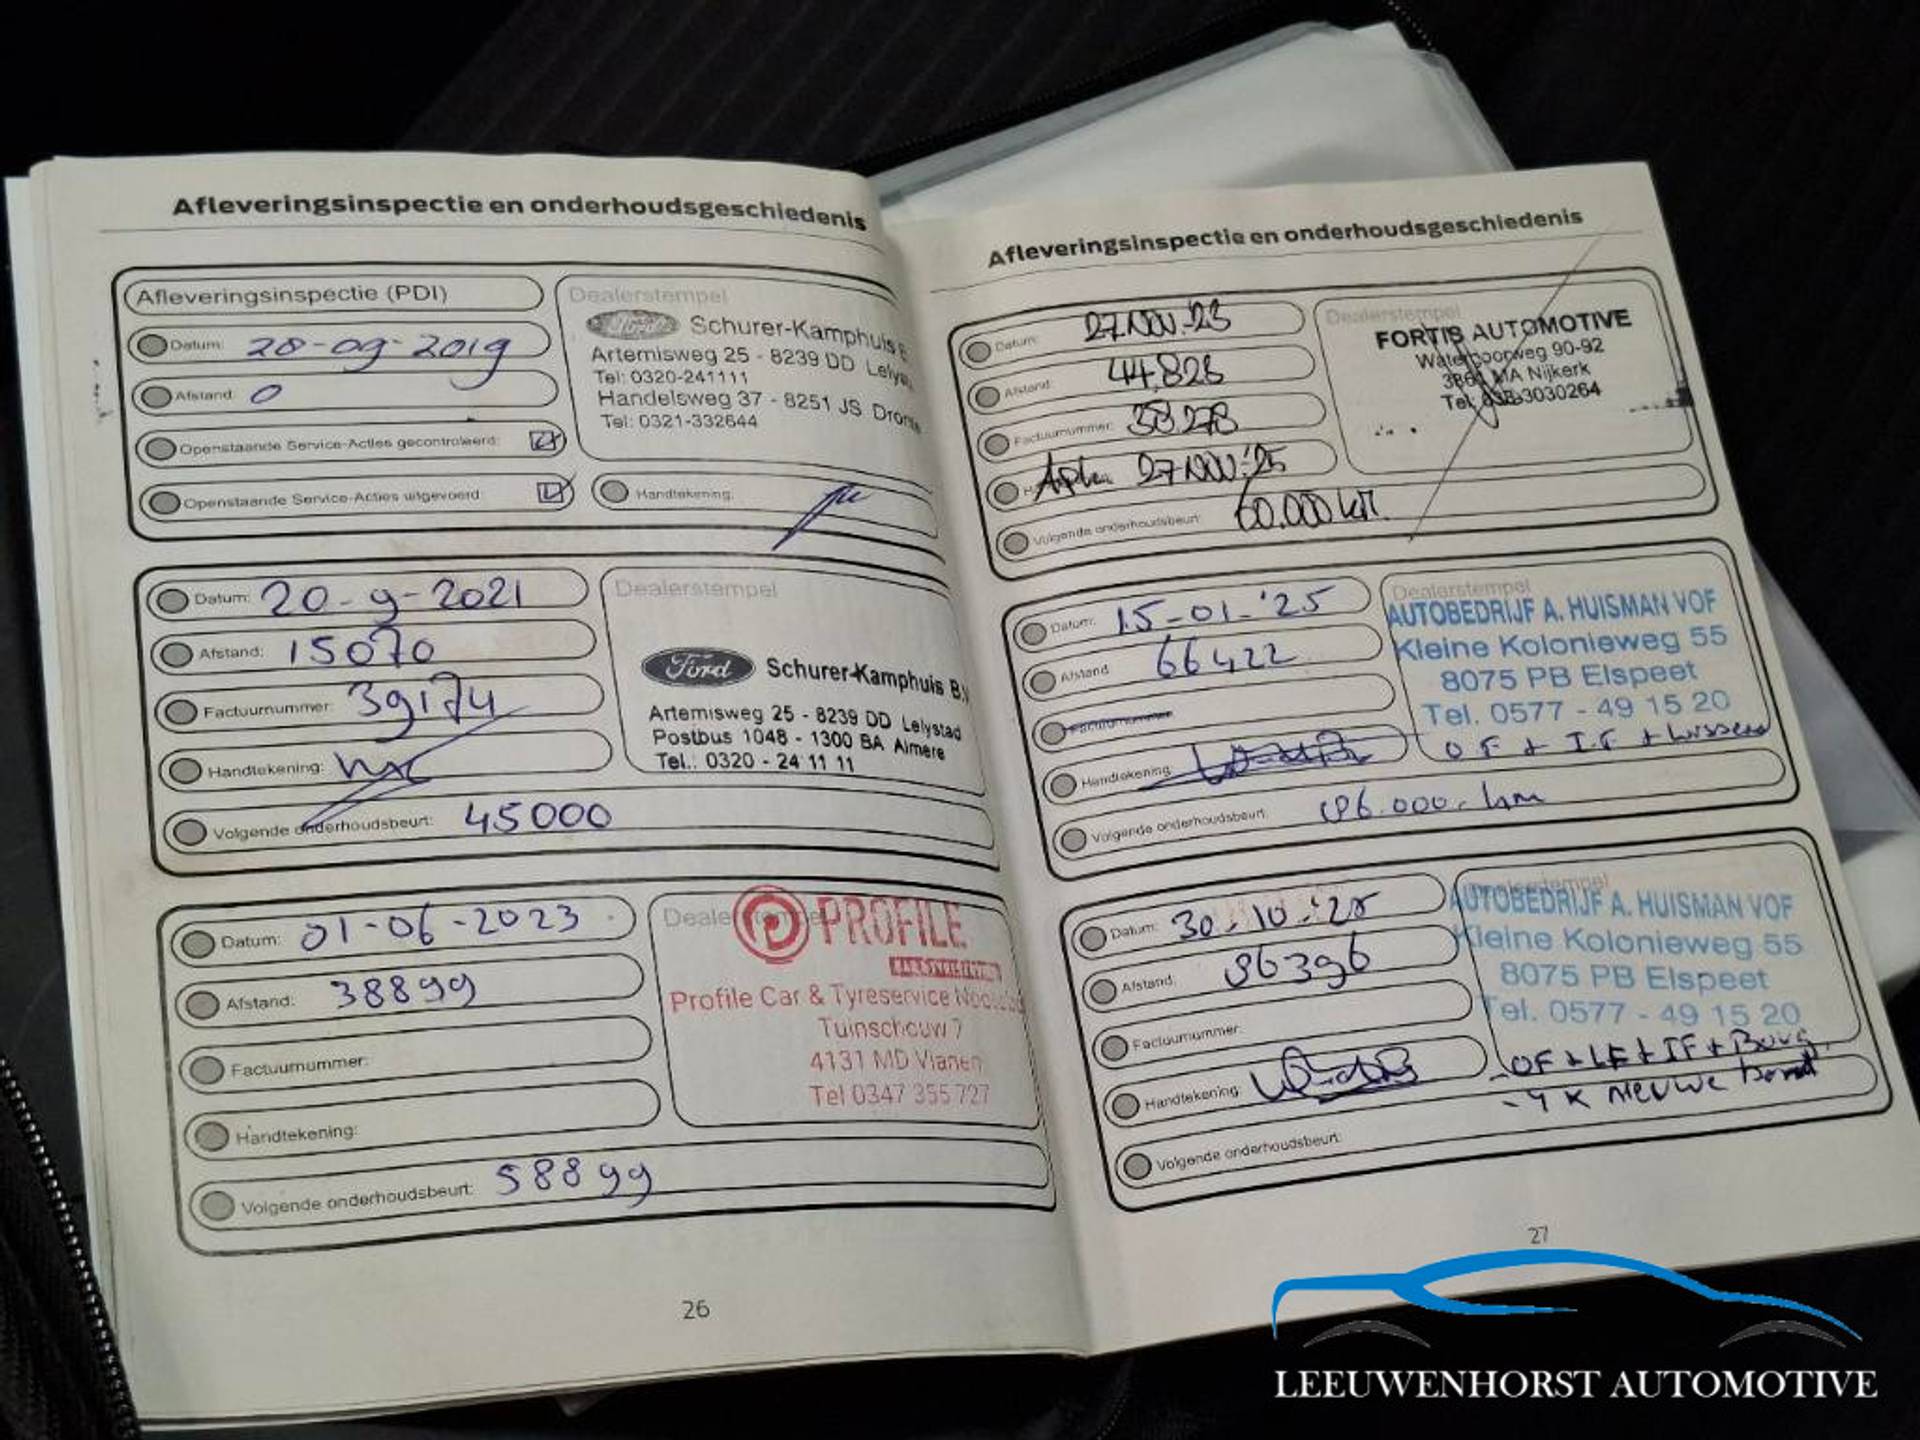 Afleveringsinspectie en onderhoudsgeschiedenis
Afleveringsinspectie (PDI)
Datum: 28-09-2019
Afstand: 0
Openstaande Service-Acties gecontroleerd:
Openstaande Service-Acties uitgevoerd:
Dealerstempel
Ford Schurer-Kamphuis B
Artemisweg 25 - 8239 DD Lelyst
Tel: 0320-241111
Handelsweg 37 - 8251 JS Dronte
Tel: 0321-332644
Handtekening:
Datum: 20-9-2021
Afstand: 15070
Factuurnummer: 39174
Handtekening:
Volgende onderhoudsbeurt: 45000
Dealerstempel
Ford Schurer-Kamphuis B.V
Artemisweg 25 - 8239 DD Lelystad
Postbus 1048 - 1300 BA Almere
Tel.: 0320 - 24 11 11
Datum: 01-06-2023
Afstand: 38899
Factuurnummer:
Handtekening:
Volgende onderhoudsbeurt: 58899
Dealerstempel
PROFILE
Profile Car & Tyreservice
Tuinschouw 7
4131 MD Vianen
Tel 0347 355 727
26
Afleveringsinspectie en onderhoudsgeschiedenis
Datum: 27 NOV.'23
Afstand: 44.826
Factuurnummer: 38.278
27 NOV.'25
Volgende onderhoudsbeurt: 60.000 km.
Dealerstempel
FORTIS AUTOMOTIVE
Watergoorweg 90-92
3861 MA Nijkerk
Tel. 038-3030264
Datum: 15-01-'25
Afstand: 66422
Factuurnummer
Handtekening:
Volgende onderhoudsbeurt: 96.000 km
Dealerstempel
AUTOBEDRIJF A. HUISMAN VOF
Kleine Kolonieweg 55
8075 PB Elspeet
Tel. 0577 - 49 15 20
OF + I.F + wissers
Datum: 30-10-'25
Afstand: 86396
Factuurnummer:
Handtekening:
Volgende onderhoudsbeurt:
Dealerstempel
AUTOBEDRIJF A. HUISMAN VOF
Kleine Kolonieweg 55
8075 PB Elspeet
Tel. 0577 - 49 15 20
- OF + LF + IF + Boug.
- 4 x nieuwe band
27
LEEUWENHORST AUTOMOTIVE